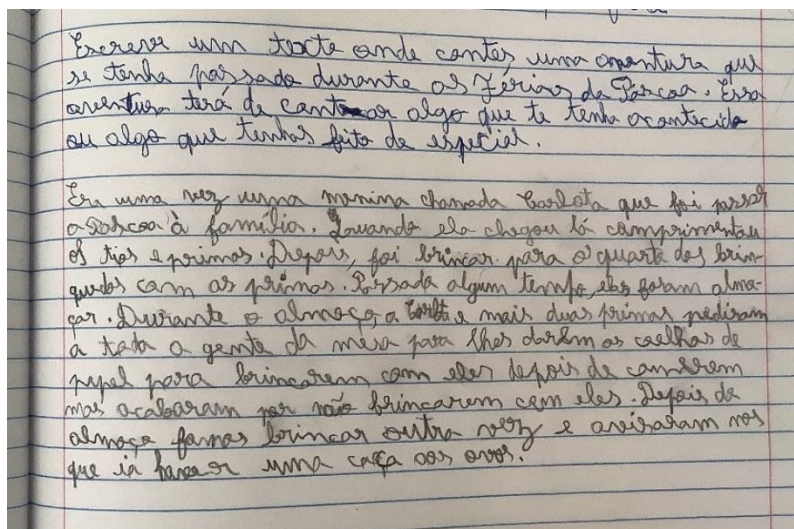 Escreve um texto onde contes uma aventura que
se tenha passado durante as férias da Páscoa. Essa
aventura terá de contar algo que te tenha acontecido
ou algo que tenhas feito de especial.
Era uma vez uma menina chamada Carlota que foi passar
a Páscoa à família. Quando ela chegou lá comprimentou
os tios e primos. Depois, foi brincar para o quarto dos brin-
quedos com as primas. Passado algum tempo, elas foram almo-
çar. Durante o almoço, a Carlota e mais duas primas pediram
a toda a gente da mesa para lhes darem os coelhos de
papel para brincarem com eles depois de comerem
mas acabaram por não brincarem com eles. Depois do
almoço fomos brincar outra vez e avisaram nos
que ia haver uma caça aos ovos.